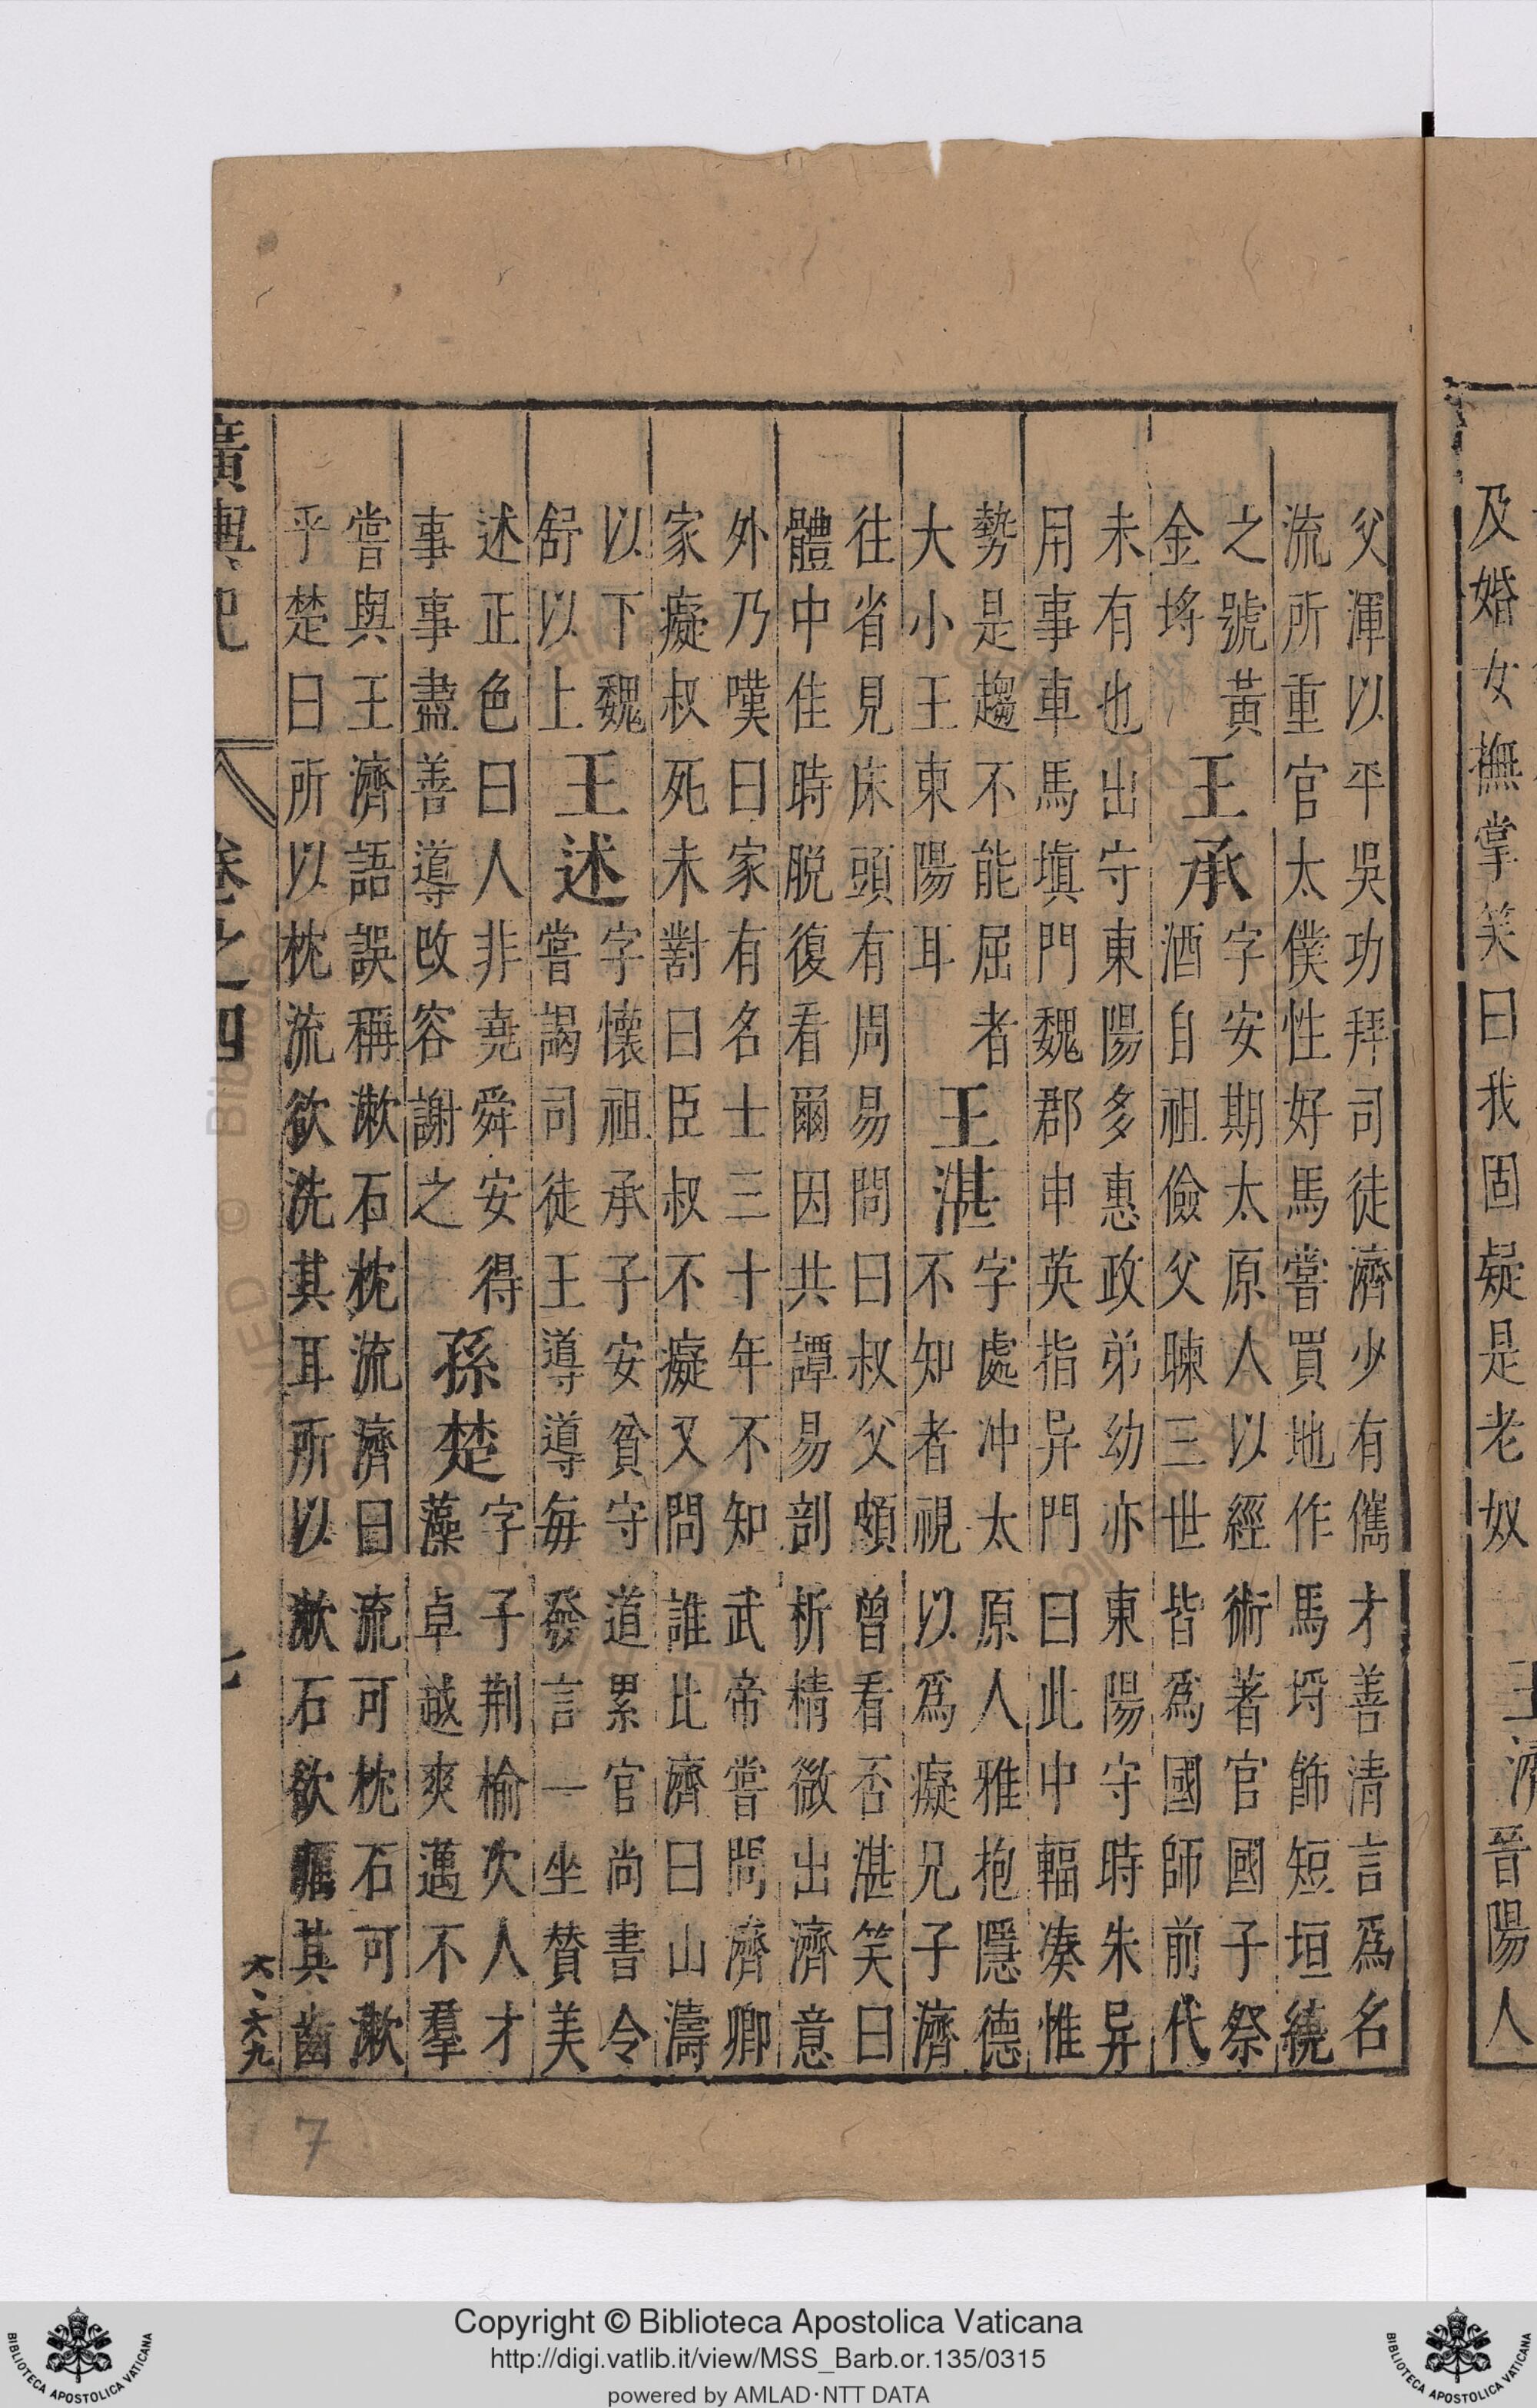 及婚女撫掌笑曰我固疑是老奴
王濟
晉陽人
父渾以平吳功拜司徒濟少有儁才善清言爲名
流所重官太僕性好馬嘗買地作馬埒飾短垣繞
之號黃
金埒
王承
字安期太原人以經術著官國子祭
酒自祖儉父暕三世皆爲國師前代
未有也出守東陽多惠政弟幼亦東陽守時朱异
用事車馬填門魏郡申英指异門曰此中輻湊惟
勢是趨不能屈者
大小王東陽耳
王湛
字處冲太原人雅抱隱德
不知者視以爲癡兄子濟
往省見床頭有周易問曰叔父頗曾看否湛笑曰
體中佳時脫復看爾因共譚易剖析精微出濟意
外乃嘆曰家有名士三十年不知武帝嘗問濟卿
家癡叔死未對曰臣叔不癡又問誰比濟曰山濤
以下魏
舒以上
王述
字懷祖承子安貧守道累官尚書令
嘗謁司徒王導導每發言一坐賛美
述正色曰人非堯舜安得
事事盡善導改容謝之
孫楚
字子荆榆次人才
藻卓越爽邁不羣
嘗與王濟語誤稱漱石枕流濟曰流可枕石可漱
乎楚曰所以枕流欲洗其耳所以漱石欲礪其齒
廣輿記
卷之四
七
7
Copyright © Biblioteca Apostolica Vaticana
http://digi.vatlib.it/view/MSS_Barb.or.135/0315
powered by AMLAD·NTT DATA
BIBLIOTECA APOSTOLICA VATICANA
BIBLIOTECA APOSTOLICA VATICANA